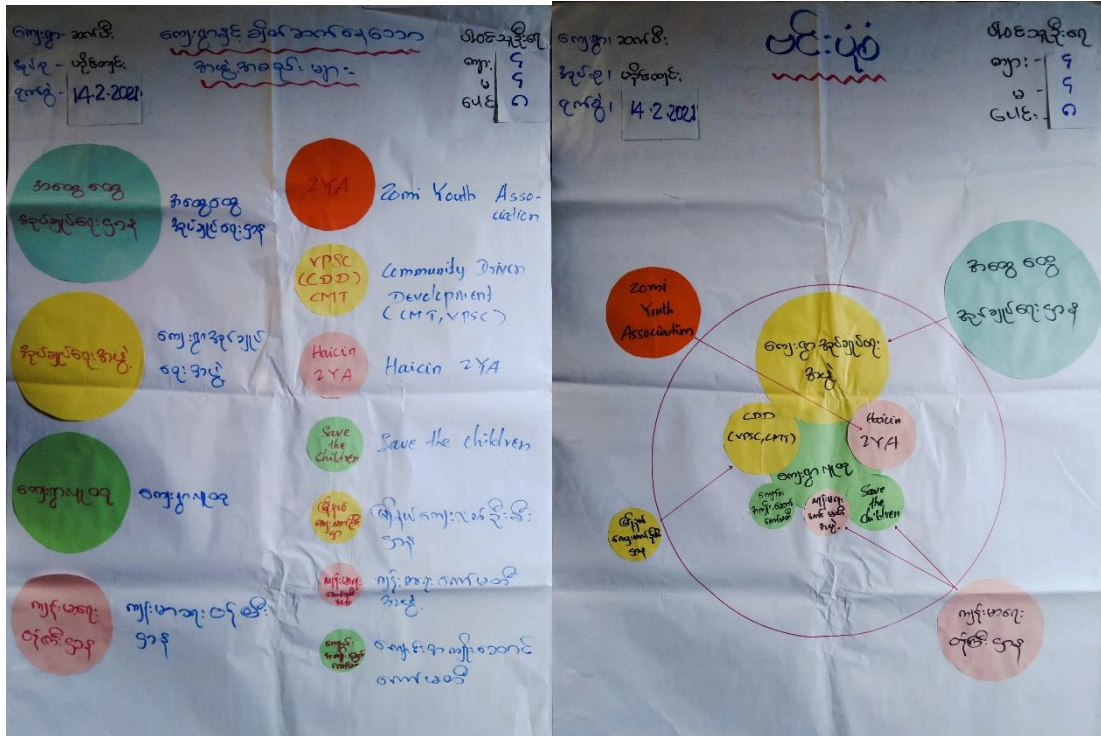 ကျေးရွာ- ဆက်ပီး
အုပ်စု - ဟိုက်စျင်း
ရက်စွဲ - 14.2.2021
ကျေးရွာနှင့် ချိတ်ဆက်နေသော
အဖွဲ့အစည်း များ
ပါဝင်သူဦးရေ
ကျား ၄
မ ၄
ပေါင်း ၈
အထွေ ထွေ
အုပ်ချုပ်ရေးဌာန
အထွေထွေ
အုပ်ချုပ်ရေးဌာန
အုပ်ချုပ်ရေးအဖွဲ့
ကျေးရွာအုပ်ချုပ်
ရေးအဖွဲ့
ကျေးရွာလူထု
ကျေးရွာလူထု
ကျန်းမာရေး
ဌာန
ကျန်းမာရေး
ဌာန
ZYA
Zomi Youth Asso-
ciation
VPSC
(CDD)
CMT
Community Driven
Development
(CMT, VPSC)
Haicin
ZYA
Haicin ZYA
Save
the
children
Save the children
မြို့နယ်
မြို့နယ်ကျေးလက်ဦးစီး
ဌာန
ကျန်းမာရေး
ကျန်းမာရေး ကော်မတီ
အဖွဲ့
ကျောင်း
ကျောင်းအကျိုးဆောင်
ကော်မတီ
ကျေးရွာ၊ ဆက်ပီး
အုပ်စု၊
ရက်စွဲ၊ 14.2.2021
ဗင်းပုံစံ
ပါဝင်သူဦးရေ
ကျား - ၄
မ - ၄
ပေါင်း - ၈
Zomi
Youth
Association
အထွေ ထွေ
အုပ်ချုပ်ရေးဌာန
ကျေးရွာအုပ်ချုပ်ရေး
အဖွဲ့
CDD
(VPSC, CMT)
Haicin
ZYA
ကျေးရွာလူထု
Save
the
children
မြို့နယ်
ဌာန
ကျန်းမာရေး
ဌာန